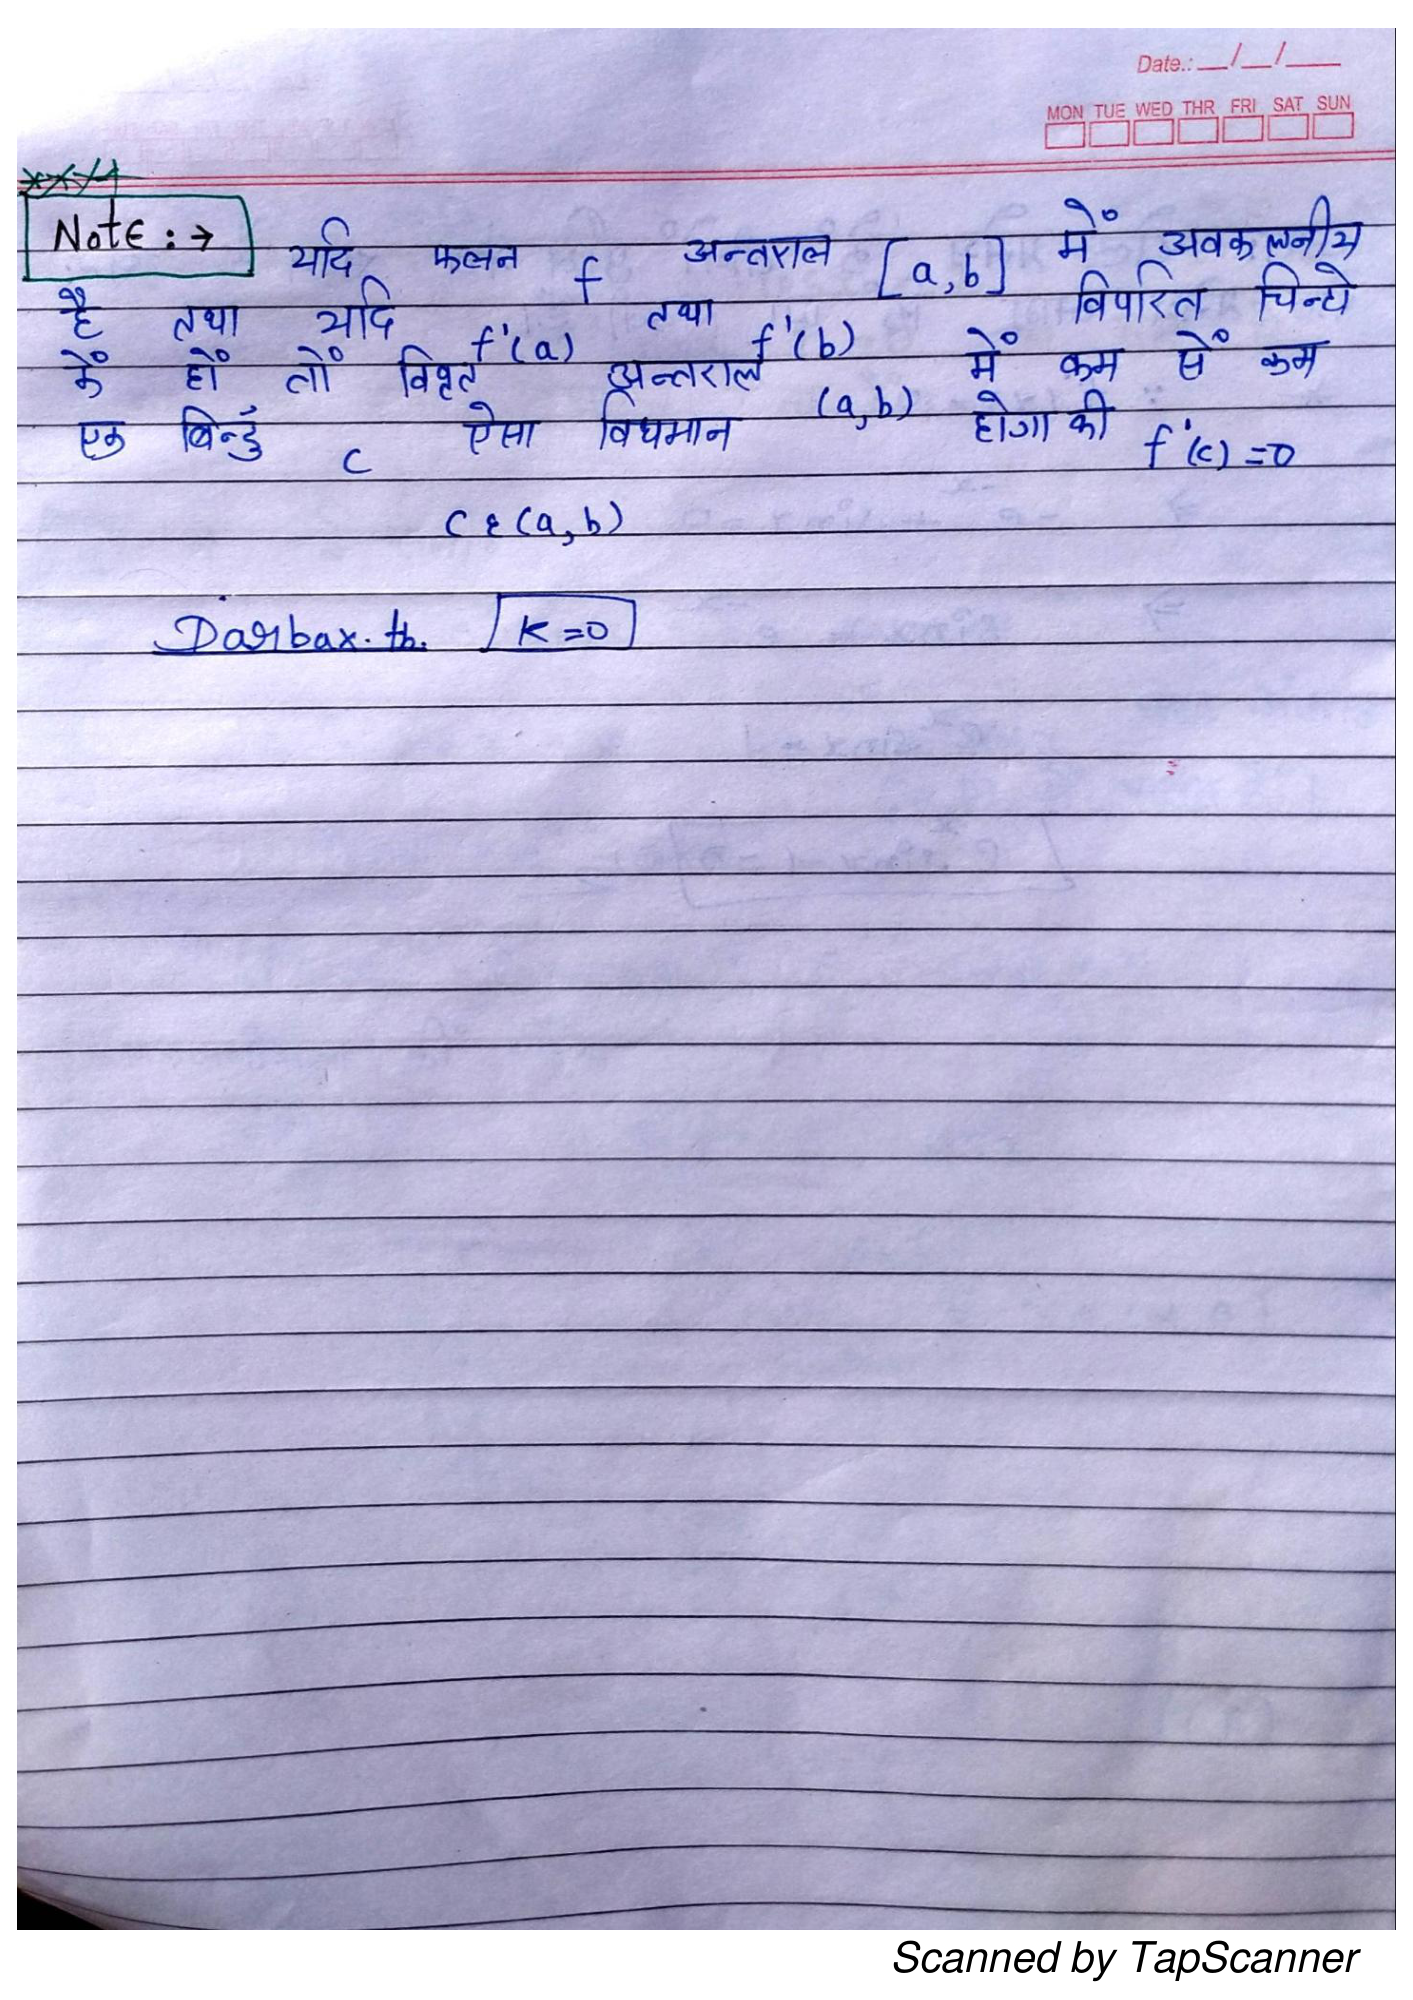 Date.: __/__/___
MON TUE WED THR FRI SAT SUN
Note : → यदि फलन f अन्तराल [a,b] में अवकलनीय
है तथा यदि f'(a) तथा f'(b) विपरित चिन्हो
कें हों तों विवृत अन्तराल (a,b) में कम सें कम
एक बिन्दुँ c ऐसा विधमान होगा की f'(c) = 0
c ε (a,b)
Darbax. th. K = 0
Scanned by TapScanner